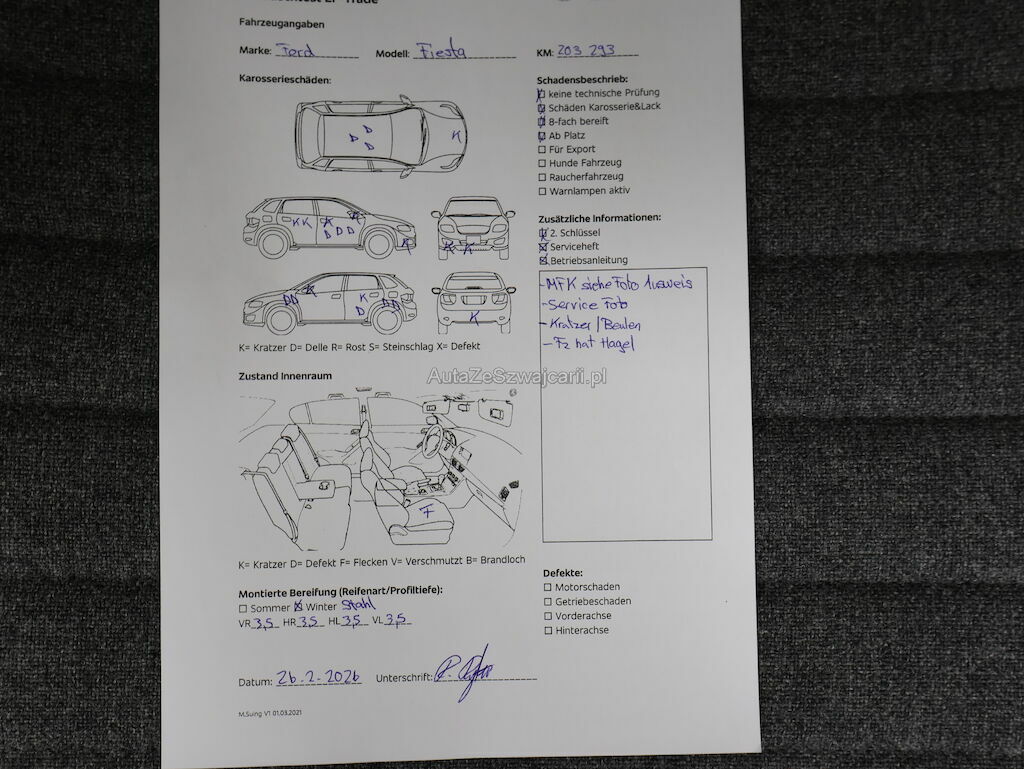 Fahrzeugangaben
Marke: Ford Modell: Fiesta KM: 203 293
Karosserieschäden:
K
D
D
D
K K K K
D D D
K
K K
D D K K D D
D
K
K= Kratzer D= Delle R= Rost S= Steinschlag X= Defekt
Schadensbeschrieb:
keine technische Prüfung
Schäden Karosserie&Lack
8-fach bereift
Ab Platz
Für Export
Hunde Fahrzeug
Raucherfahrzeug
Warnlampen aktiv
Zusätzliche Informationen:
2. Schlüssel
Serviceheft
Betriebsanleitung
- MFK siehe Foto Ausweis
- Service Foto
- Kratzer / Beulen
- Fz hat Hagel
AutaZeSzwajcarii.pl
Zustand Innenraum
F
K= Kratzer D= Defekt F= Flecken V= Verschmutzt B= Brandloch
Montierte Bereifung (Reifenart/Profiltiefe):
Sommer Winter Stahl
VR 3,5 HR 3,5 HL 3,5 VL 3,5
Defekte:
Motorschaden
Getriebeschaden
Vorderachse
Hinterachse
Datum: 26.2.2026 Unterschrift:
M.Suing V1 01.03.2021